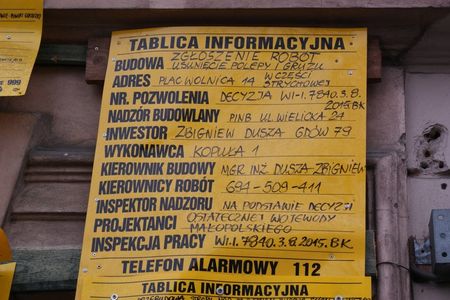 TABLICA INFORMACYJNA
ZGŁOSZENIE ROBÓT
BUDOWA USUNIĘCIE POLEPY I GRUZU
W CZĘŚCI
ADRES PLAC WOLNICA 14 STRYCHOWEJ
NR. POZWOLENIA DECYZJA WI-I.7840.3.8.
2015.BK
NADZÓR BUDOWLANY PINB UL WIELICKA 24
INWESTOR ZBIGNIEW DUSZA GDÓW 79
WYKONAWCA KOPUŁA 1
KIEROWNIK BUDOWY MGR INŻ DUSZA ZBIGNIEW
KIEROWNICY ROBÓT 694-509-411
INSPEKTOR NADZORU NA PODSTAWIE DECYZJI
OSTATECZNEJ WOJEWODY
PROJEKTANCI MAŁOPOLSKIEGO
INSPEKCJA PRACY WI-I.7840.3.8.2015.BK
TELEFON ALARMOWY 112
TABLICA INFORMACYJNA
999